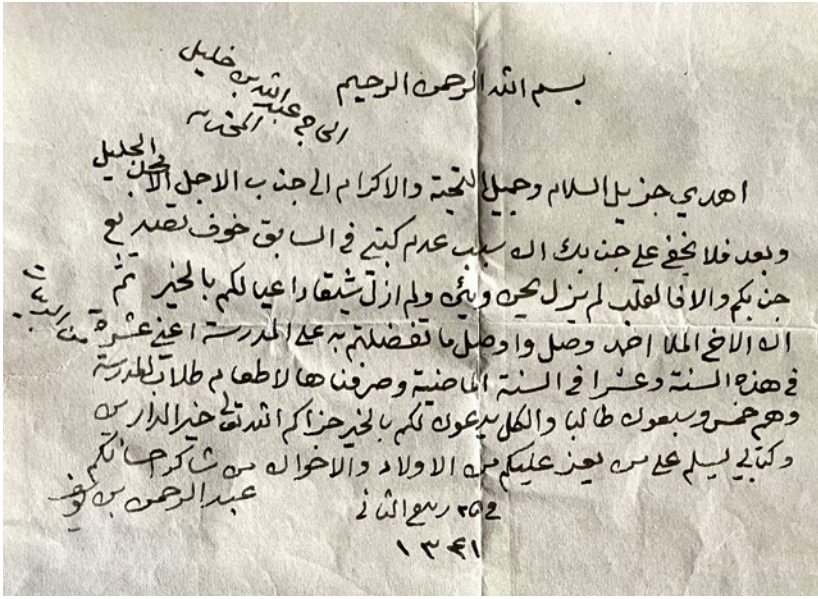 بسم الله الرحمن الرحيم
الى حج عبدالله بن خليل
اهدي جزيل السلام وجميل التحية والاكرام الى جناب الاجل الافخم الجليل
وبعد فلا يخفى على جنابك ان سبب عدم كتبي في السابق خوف تصديع
جنابكم والا فالقلب لم يزل يحن ولم ازل داعيا لكم بالخير ثم
ان الاخ الملا احمد وصل واوصل ما تفضلتم به على المدرسة اعني عشرة من
في هذه السنة وعشرا في السنة الماضية وصرفناها لاطعام طلاب المدرسة
وهم خمس وسبعون طالبا والكل يدعون لكم بالخير جزاكم الله تعالى خير الدارين
وكتابي ليسلم على من يعز عليكم من الاولاد والاخوان من شاكر احسانكم
عبدالرحمن بن يوسف
في ٢٥ ربيع الثاني
١٣٤١